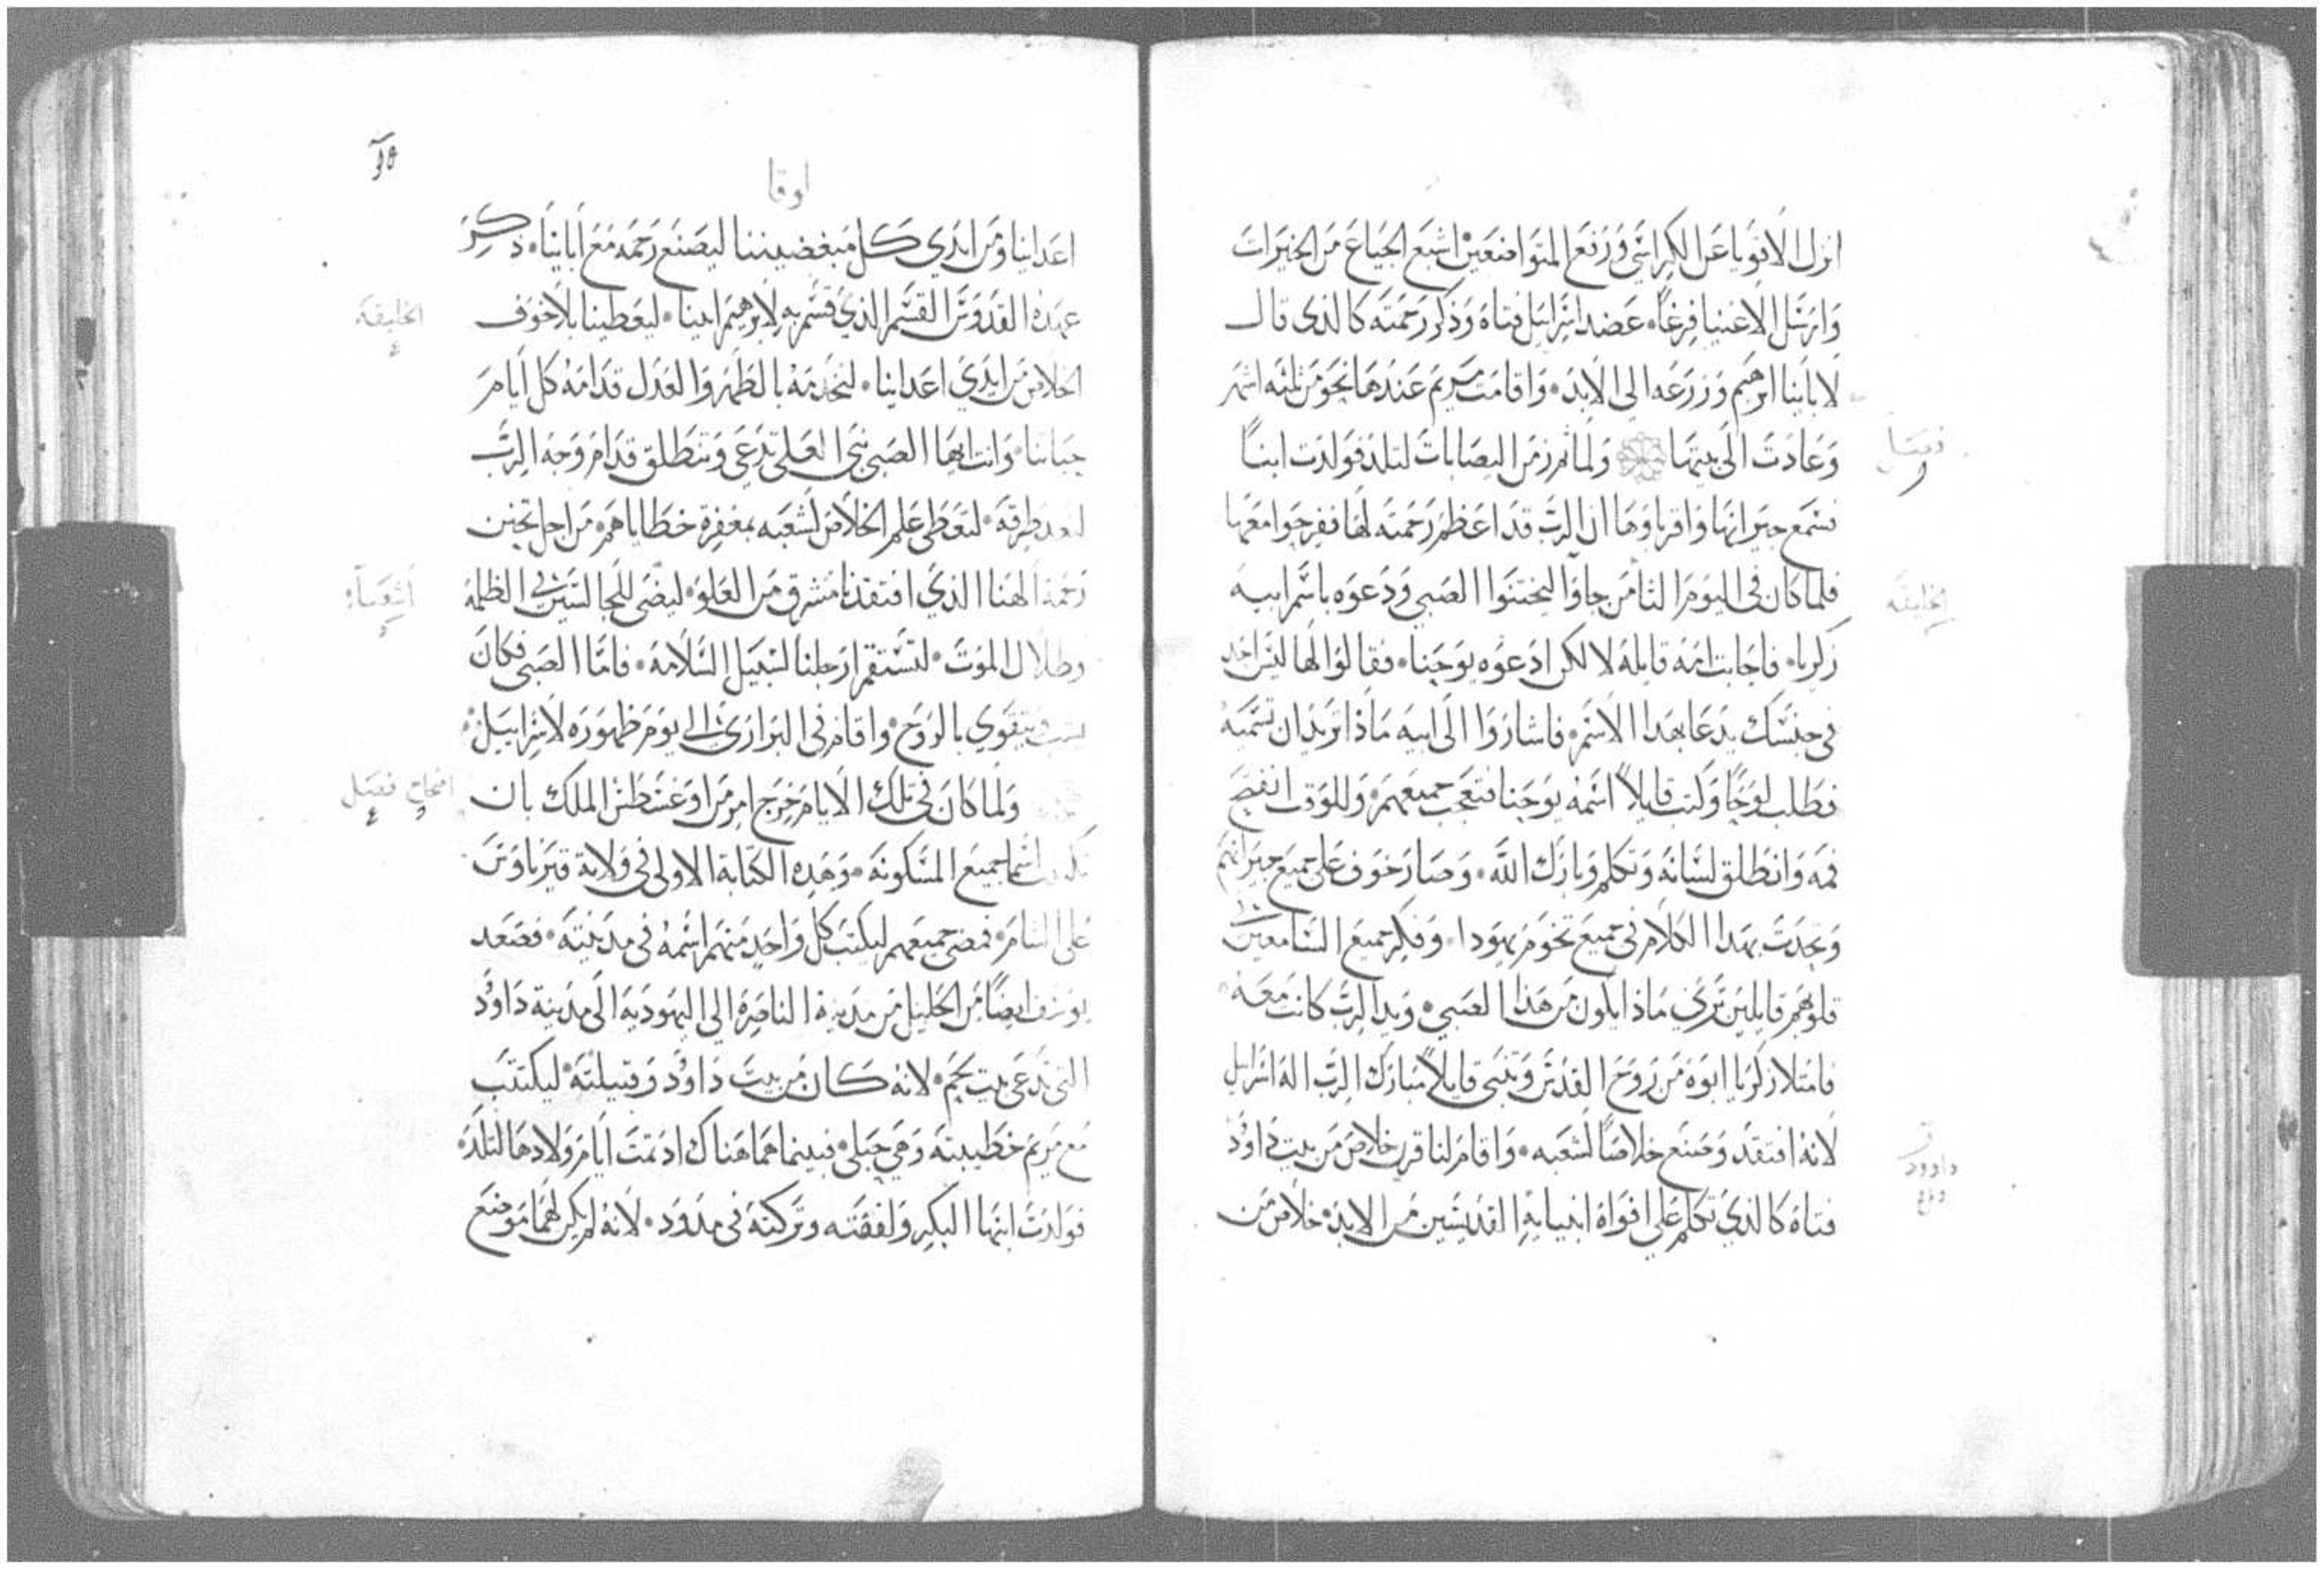 انزل الاقويا عن الكراسي ورفع المتواضعين اشبع الجياع من الخيرات
وارسل الاغنيا فرغا عضد اسرايل فتاه وذكر رحمته كالذي قال
لابائنا ابرهيم وزرعه الى الابد واقامت مريم عندها نحو من ثلثه اشهر
وعادت الى بيتها ولما تم زمن اليصابات لتلد فولدت ابنا
فصل
فسمع جيرانها واقرباوها ان الرب قد اعظم رحمته لها ففرحوا معها
فلما كان في اليوم الثامن جاوا ليختنوا الصبي ودعوه باسم ابيه
الخليقه
زكريا فاجابت امه قايله لا لكن ادعوه يوحنا فقالوا لها ليس احد
في جنسك يدعا بهدا الاسم فاشاروا الى ابيه ماذا تريد ان تسميه
فطلب لوحا وكتب قايلا اسمه يوحنا فتعجب جميعهم وللوقت انفتح
فمه وانطلق لسانه وتكلم وبارك الله وصار خوف على جميع جيرانهم
وتحدث بهدا الكلام في جميع تخوم يهودا وفكر جميع السامعين
قلوبهم قايلين ترى ماذا يكون من هذا الصبي ويد الرب كانت معه
فامتلا زكريا ابوه من روح القدس وتنبى قايلا مبارك الرب اله اسرايل
لانه افتقد وصنع خلاصا لشعبه واقام لنا قرن خلاص من بيت داوود
داوود
فتاه كالذي تكلم على افواه انبيايه القديسين من الابد خلاص من
لوقا
اعداينا ومن ايدي كل مبغضيننا ليصنع رحمه مع ابائنا ذكر
عهده القدوس القسم الذي قسم به لابرهيم ابينا ليعطينا بلا خوف
الخليقه
الخلاص من ايدي اعداينا لنخدمه بالطهر والعدل قدامه كل ايام
حياتنا وانت ايها الصبي نبي العلى تدعى وتنطلق قدام وجه الرب
لتعد طرقه لتعطى علم الخلاص لشعبه بمغفرة خطاياهم من اجل تحنن
رحمة الهنا الذي افتقدنا مشرق من العلو ليضى للجالسين في الظلمه
اشعيا
وظلال الموت لتستقم ارجلنا لسبيل السلامه فاما الصبي فكان
يتقوى بالروح واقام في البراري الى يوم ظهوره لاسراييل
ولما كان في تلك الايام خرج امر من اوغسطس الملك بان
فصل
اسما جميع المسكونه وهده الكتابة الاولى في ولاية قيرناوس
على الشام فمضى جميعهم ليكتب كل واحد منهم اسمه في مدينته فصعد
يوسف ايضا من الجليل من مدينة الناصره الى اليهوديه الى مدينة داوود
التي تدعى بيت لحم لانه كان من بيت داوود وقبيلته ليكتتب
مع مريم خطيبته وهي حبلى فبينما هما هناك اد تمت ايام ولادها لتلد
فولدت ابنها البكر ولففته وتركته في مدود لانه لم يكن لهما موضع